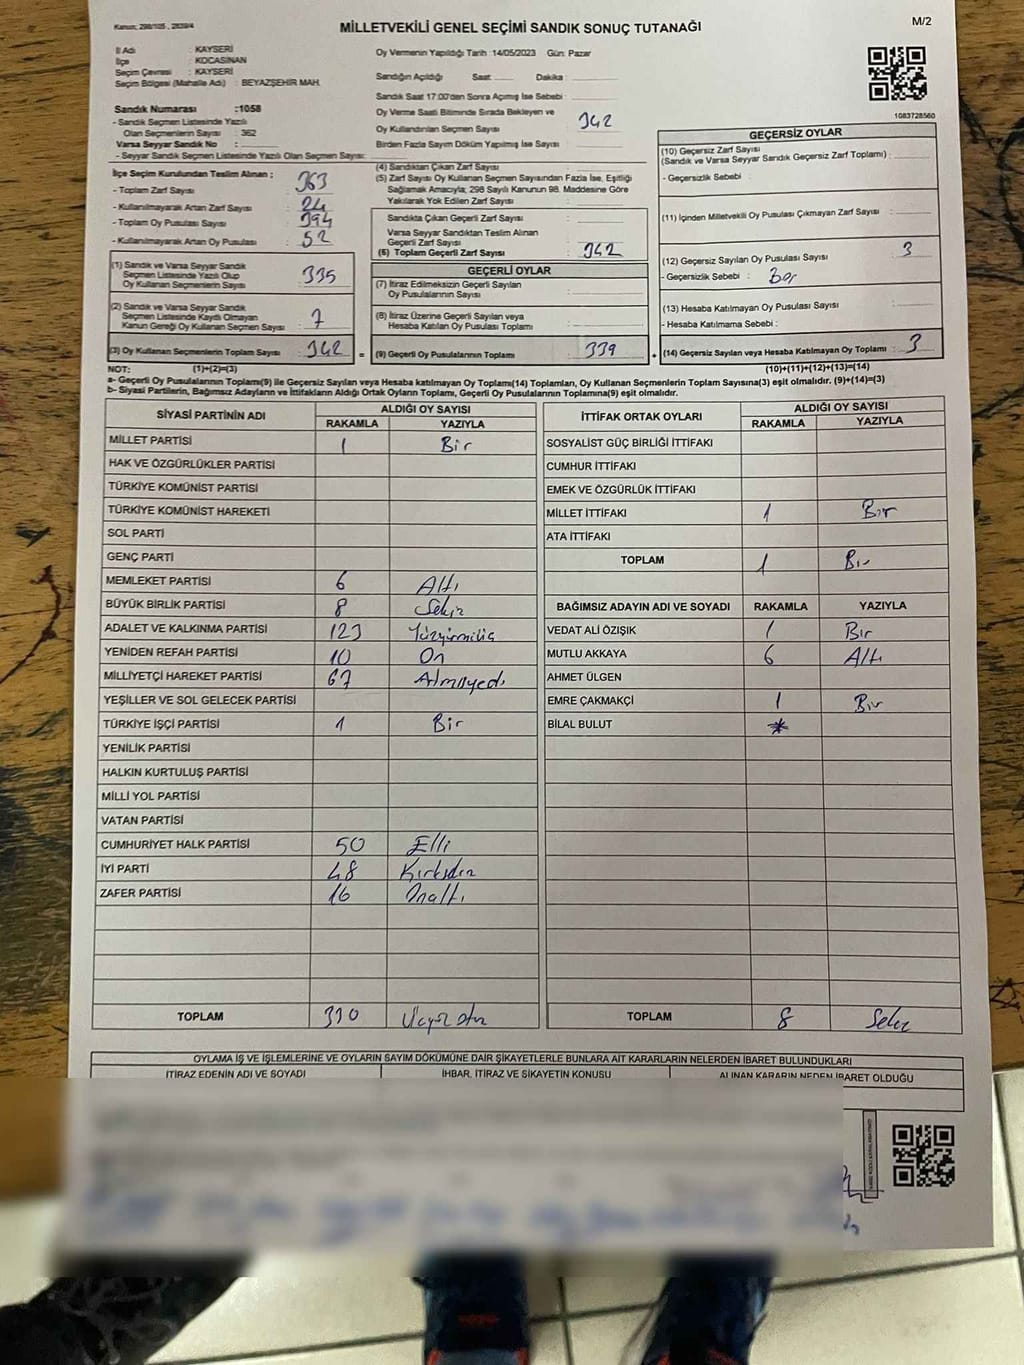 Kanun: 298/105 , 2839/4
MİLLETVEKİLİ GENEL SEÇİMİ SANDIK SONUÇ TUTANAĞI
M/2
İl Adı : KAYSERİ
İlçe : KOCASİNAN
Seçim Çevresi : KAYSERİ
Seçim Bölgesi (Mahalle Adı) : BEYAZŞEHİR MAH.
Oy Vermenin Yapıldığı Tarih :14/05/2023 Gün: Pazar
Sandığın Açıldığı Saat: Dakika :
Sandık Saat 17:00'den Sonra Açımış İse Sebebi :
Sandık Numarası :1058
- Sandık Seçmen Listesinde Yazılı
Olan Seçmenlerin Sayısı : 362
Varsa Seyyar Sandık No :
- Seyyar Sandık Seçmen Listesinde Yazılı Olan Seçmen Sayısı:
Oy Verme Saati Bitiminde Sırada Bekleyen ve
Oy Kullandırılan Seçmen Sayısı : 342
Birden Fazla Sayım Döküm Yapılmış İse Sayısı :
1083728560
İlçe Seçim Kurulundan Teslim Alınan ;
- Toplam Zarf Sayısı : 363
- Kullanılmayarak Artan Zarf Sayısı : 24
- Toplam Oy Pusulası Sayısı : 394
- Kullanılmayarak Artan Oy Pusulası : 52
(1) Sandık ve Varsa Seyyar Sandık
Seçmen Listesinde Yazılı Olup
Oy Kullanan Seçmenlerin Sayısı : 335
(2) Sandık ve Varsa Seyyar Sandık
Seçmen Listesinde Kayıtlı Olmayan
Kanun Gereği Oy Kullanan Seçmen Sayısı : 7
(3) Oy Kullanan Seçmenlerin Toplam Sayısı : 342
=
(4) Sandıktan Çıkan Zarf Sayısı :
(5) Zarf Sayısı Oy Kullanan Seçmen Sayısından Fazla İse, Eşitliği
Sağlamak Amacıyla; 298 Sayılı Kanunun 98. Maddesine Göre
Yakılarak Yok Edilen Zarf Sayısı :
Sandıkta Çıkan Geçerli Zarf Sayısı :
Varsa Seyyar Sandıktan Teslim Alınan
Geçerli Zarf Sayısı :
(6) Toplam Geçerli Zarf Sayısı : 342
GEÇERLİ OYLAR
(7) İtiraz Edilmeksizin Geçerli Sayılan
Oy Pusulalarının Sayısı :
(8) İtiraz Üzerine Geçerli Sayılan veya
Hesaba Katılan Oy Pusulası Toplamı :
(9) Geçerli Oy Pusulalarının Toplamı : 339
+
GEÇERSİZ OYLAR
(10) Geçersiz Zarf Sayısı
(Sandık ve Varsa Seyyar Sandık Geçersiz Zarf Toplamı) :
- Geçersizlik Sebebi :
(11) İçinden Milletvekili Oy Pusulası Çıkmayan Zarf Sayısı :
(12) Geçersiz Sayılan Oy Pusulası Sayısı : 3
- Geçersizlik Sebebi :
(13) Hesaba Katılmayan Oy Pusulası Sayısı :
- Hesaba Katılmama Sebebi :
(14) Geçersiz Sayılan veya Hesaba Katılmayan Oy Toplamı : 3
NOT: (1)+(2)=(3) (10)+(11)+(12)+(13)=(14)
a- Geçerli Oy Pusulalarının Toplamı(9) ile Geçersiz Sayılan veya Hesaba katılmayan Oy Toplamı(14) Toplamları, Oy Kullanan Seçmenlerin Toplam Sayısına(3) eşit olmalıdır. (9)+(14)=(3)
b- Siyasi Partilerin, Bağımsız Adayların ve İttifakların Aldığı Ortak Oyların Toplamı, Geçerli Oy Pusulalarının Toplamına(9) eşit olmalıdır.
SİYASİ PARTİNİN ADI ALDIĞI OY SAYISI
RAKAMLA YAZIYLA
MİLLET PARTİSİ 1 Bir
HAK VE ÖZGÜRLÜKLER PARTİSİ
TÜRKİYE KOMÜNİST PARTİSİ
TÜRKİYE KOMÜNİST HAREKETİ
SOL PARTİ
GENÇ PARTİ
MEMLEKET PARTİSİ 6 Altı
BÜYÜK BİRLİK PARTİSİ 8 Sekiz
ADALET VE KALKINMA PARTİSİ 123 Yüzyirmiüç
YENİDEN REFAH PARTİSİ 10 On
MİLLİYETÇİ HAREKET PARTİSİ 67 Atmışyedi
YEŞİLLER VE SOL GELECEK PARTİSİ
TÜRKİYE İŞÇİ PARTİSİ 1 Bir
YENİLİK PARTİSİ
HALKIN KURTULUŞ PARTİSİ
MİLLİ YOL PARTİSİ
VATAN PARTİSİ
CUMHURİYET HALK PARTİSİ 50 Elli
İYİ PARTİ 48 Kırksekiz
ZAFER PARTİSİ 16 Onaltı
TOPLAM 330 Üçyüz otuz
İTTİFAK ORTAK OYLARI ALDIĞI OY SAYISI
RAKAMLA YAZIYLA
SOSYALİST GÜÇ BİRLİĞİ İTTİFAKI
CUMHUR İTTİFAKI
EMEK VE ÖZGÜRLÜK İTTİFAKI
MİLLET İTTİFAKI 1 Bir
ATA İTTİFAKI
TOPLAM 1 Bir
BAĞIMSIZ ADAYIN ADI VE SOYADI RAKAMLA YAZIYLA
VEDAT ALİ ÖZIŞIK 1 Bir
MUTLU AKKAYA 6 Altı
AHMET ÜLGEN
EMRE ÇAKMAKÇİ 1 Bir
BİLAL BULUT
TOPLAM 8 Sekiz
OYLAMA İŞ VE İŞLEMLERİNE VE OYLARIN SAYIM DÖKÜMÜNE DAİR ŞİKAYETLERLE BUNLARA AİT KARARLARIN NELERDEN İBARET BULUNDUKLARI
İTİRAZ EDENİN ADI VE SOYADI İHBAR, İTİRAZ VE ŞİKAYETİN KONUSU ALINAN KARARIN NEDEN İBARET OLDUĞU